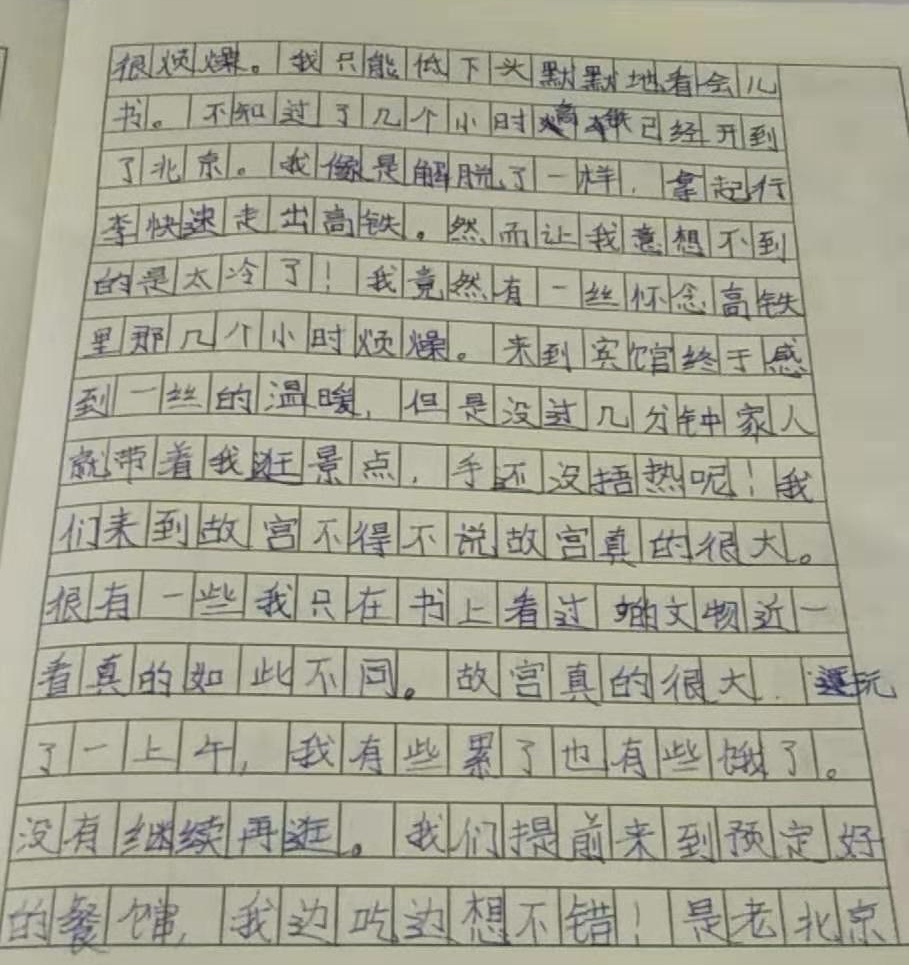 很烦燥。我只能低下头默默地看会儿
书。不知过了几个小时高铁已经开到
了北京。我像是解脱了一样，拿起行
李快速走出高铁。然而让我意想不到
的是太冷了！我竟然有一丝怀念高铁
里那几个小时烦燥。来到宾馆终于感
到一丝的温暖，但是没过几分钟家人
就带着我逛景点，手还没捂热呢！我
们来到故宫不得不说故宫真的很大。
很有一些我只在书上看过的文物近一
看真的如此不同。故宫真的很大．逛玩
了一上午，我有些累了也有些饿了。
没有继续再逛。我们提前来到预定好
的餐馆，我边吃边想不错！是老北京